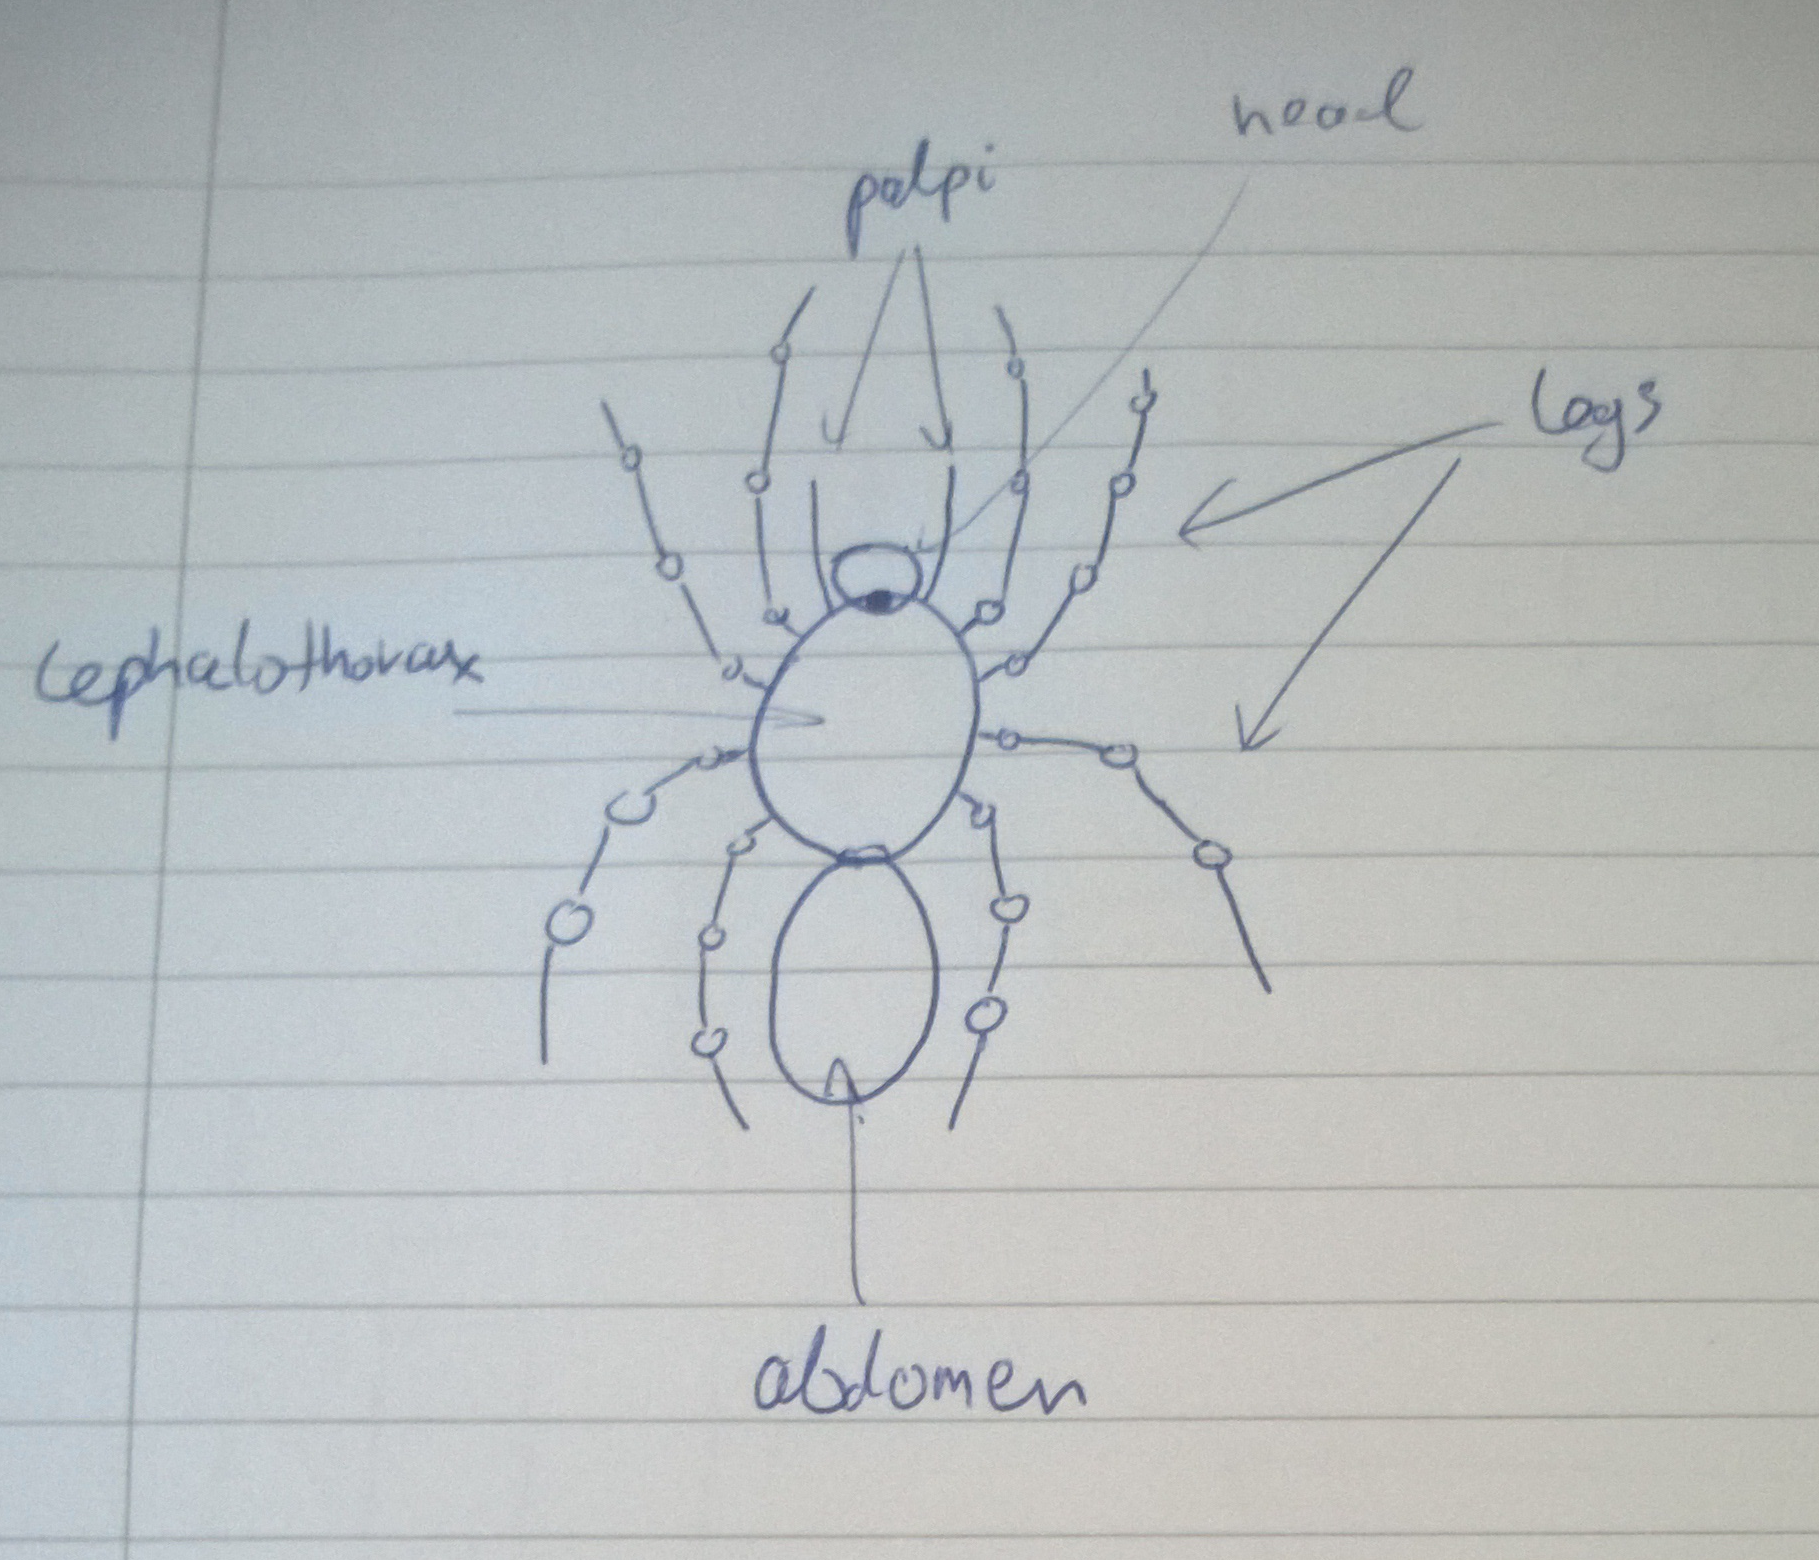 head
palpi
legs
cephalothorax
abdomen